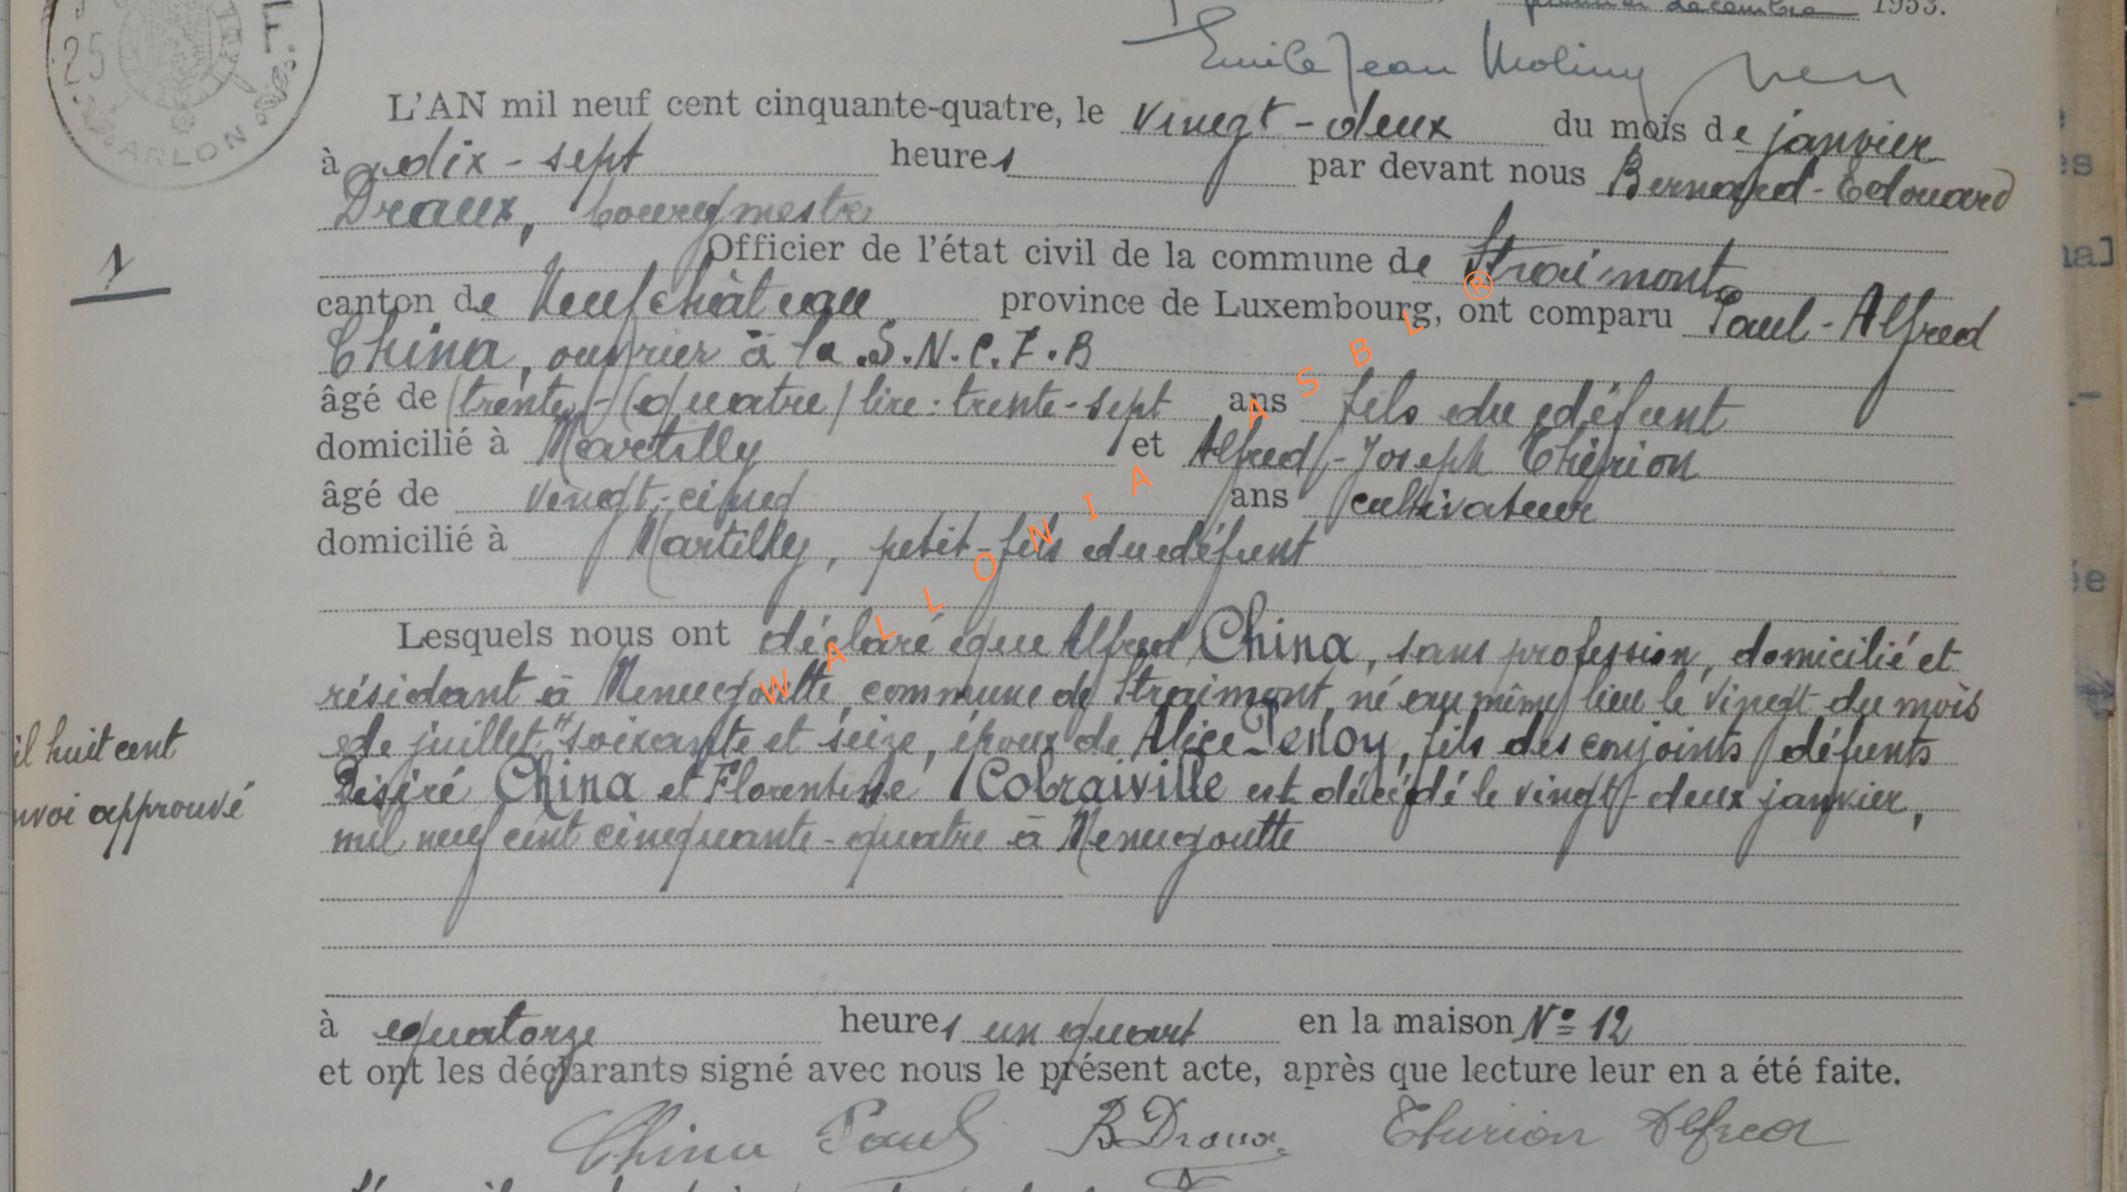 premier décembre 1953.
Emile Jean Molimy
25
ARLON
L'AN mil neuf cent cinquante-quatre, le vinegt-deux du mois de janvier
à dix-sept heures par devant nous Bernard-Edouard
Draux, bourgmestre
Officier de l'état civil de la commune de Straimont
1
canton de Neufchâteau province de Luxembourg, ont comparu Paul-Alfred
China, ouvrier à la S.N.C.F.B
âgé de (trente)-(quatre) lire: trente-sept ans fils du défunt
domicilié à Martilly et Alfred-Joseph Thirion
âgé de vingt-cinq ans cultivateur
domicilié à Martilly, petit-fils du défunt
WALLONIA ASBL ®
Lesquels nous ont déclaré que Alfred China, sans profession, domicilié et
résidant à Menugoutte, commune de Straimont, né au même lieu le vingt du mois
de juillet " soixante et seize, époux de Alice Penoy, fils des conjoints défunts
il huit cent
Désiré China et Florentine Cobraiville est décédé le vingt-deux janvier,
nvoi approuvé
mil neuf cent cinquante-quatre à Menugoutte
à quatorze heures un quart en la maison N° 12
et ont les déclarants signé avec nous le présent acte, après que lecture leur en a été faite.
China Paul B Draux Thirion Alfred